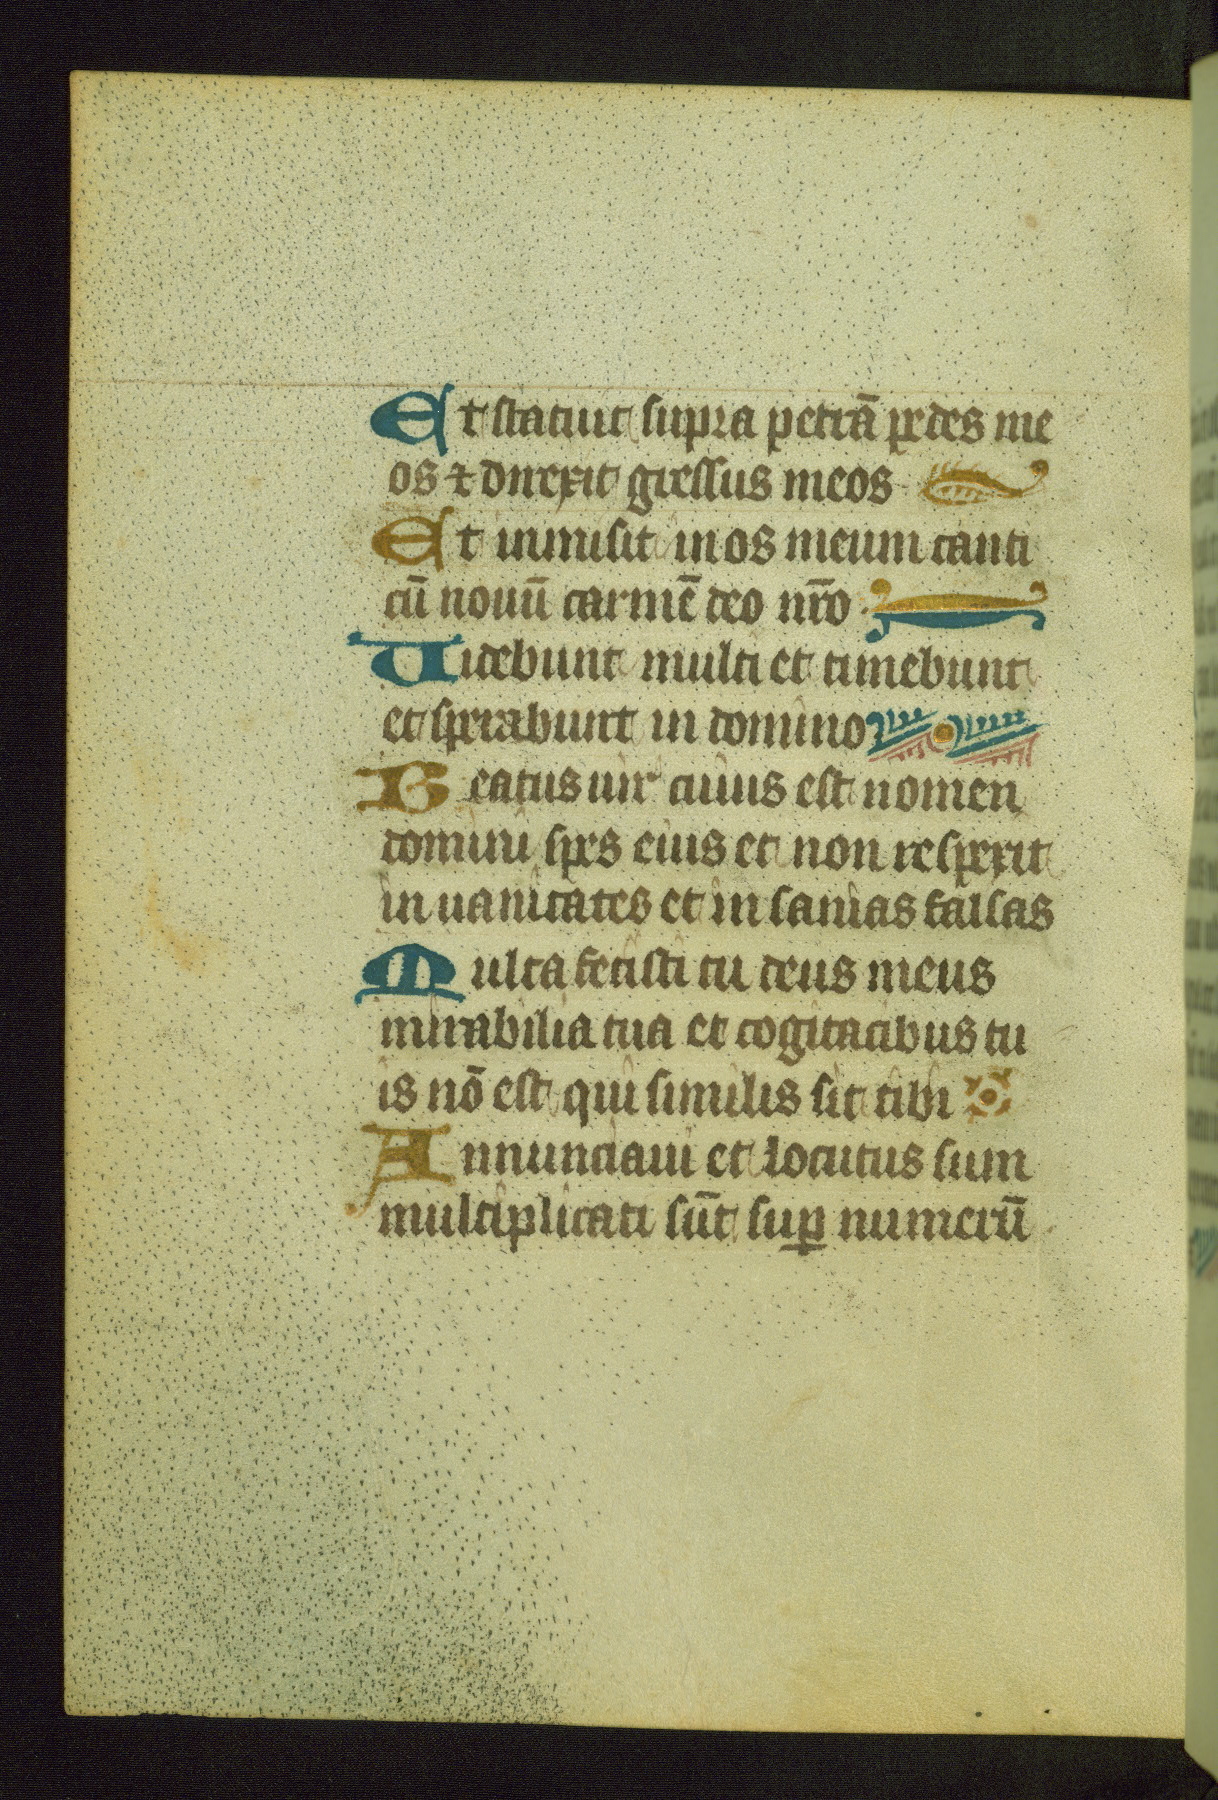 Et statuit supra petrã pedes me
os ⁊ direxit gressus meos
Et inmisit in os meum canti
cũ nouũ carmẽ deo nr̃o
Uidebunt multi et timebunt
et sperabunt in domino
Beatus uir cuius est nomen
domini spes eius et non respexit
in uanitates et in sanias falsas
Multa fecisti tu deus meus
mirabilia tua et cogitacibus tu
is nõ est qui similis sit tibi
Annunciaui et locutus sum
multiplicati sũt suꝑ numerũ